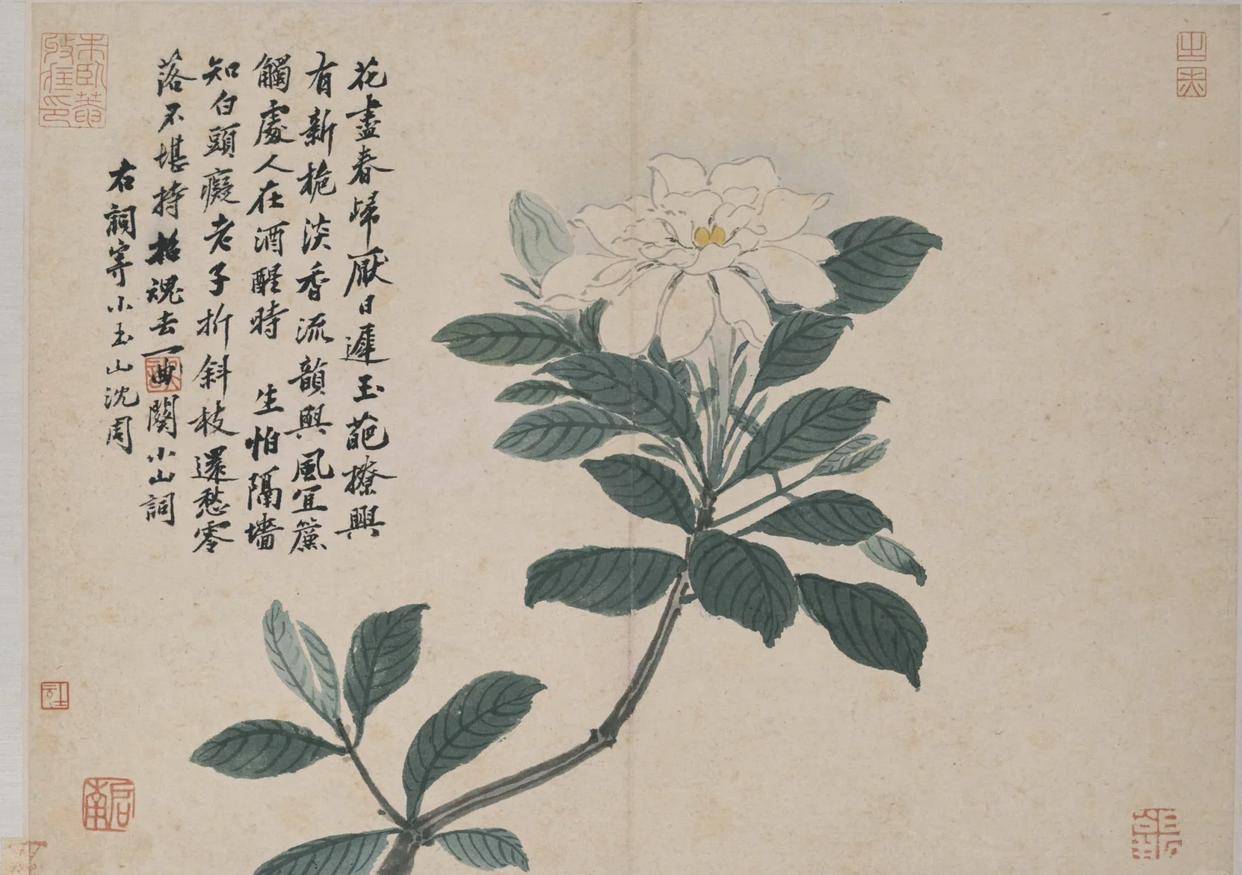 花盡春歸厭日遲玉葩撩興
有新栀淡香流韻與風宜簾
觸處人在酒醒時 生怕隔墻
知白頭癡老子折斜枝還愁零
落不堪持招魂去一曲闋小山詞
右詞寄小玉山沈周
啟南